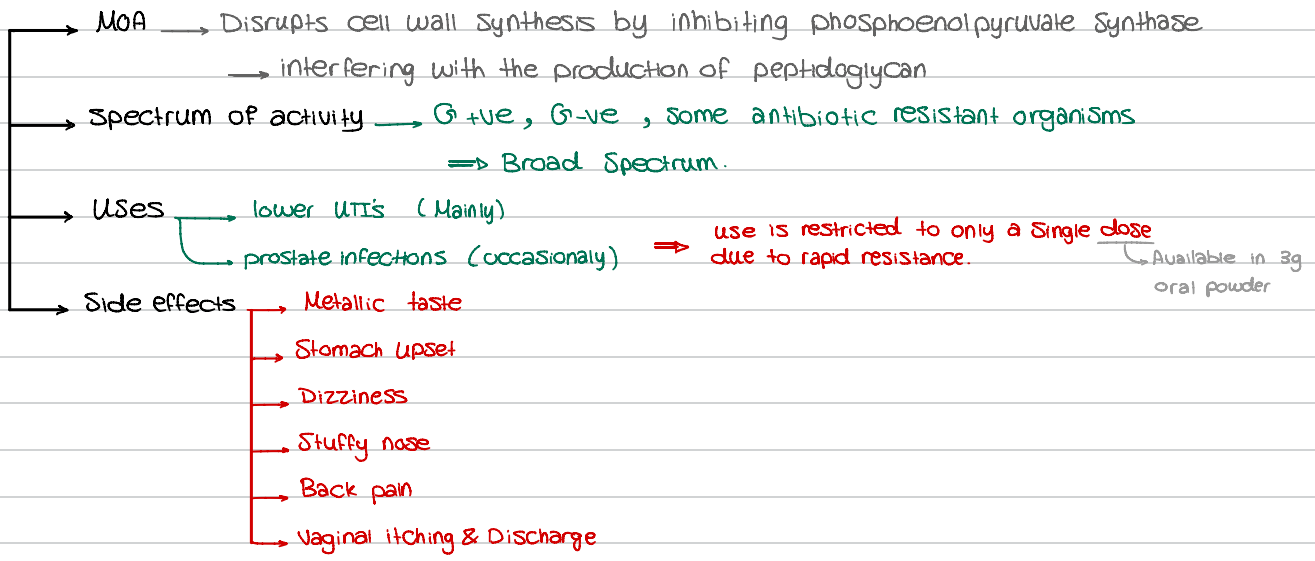 MOA → Disrupts cell wall synthesis by inhibiting phosphoenolpyruvate synthase
→ interfering with the production of peptidoglycan
Spectrum of activity → G +ve, G -ve, some antibiotic resistant organisms
⇒ Broad Spectrum.
Uses → lower UTI's (Mainly)
→ prostate infections (occasionaly) ⇒ use is restricted to only a single dose
due to rapid resistance.
→ Available in 3g
oral powder
Side effects → Metallic taste
→ Stomach upset
→ Dizziness
→ Stuffy nose
→ Back pain
→ Vaginal itching & Discharge